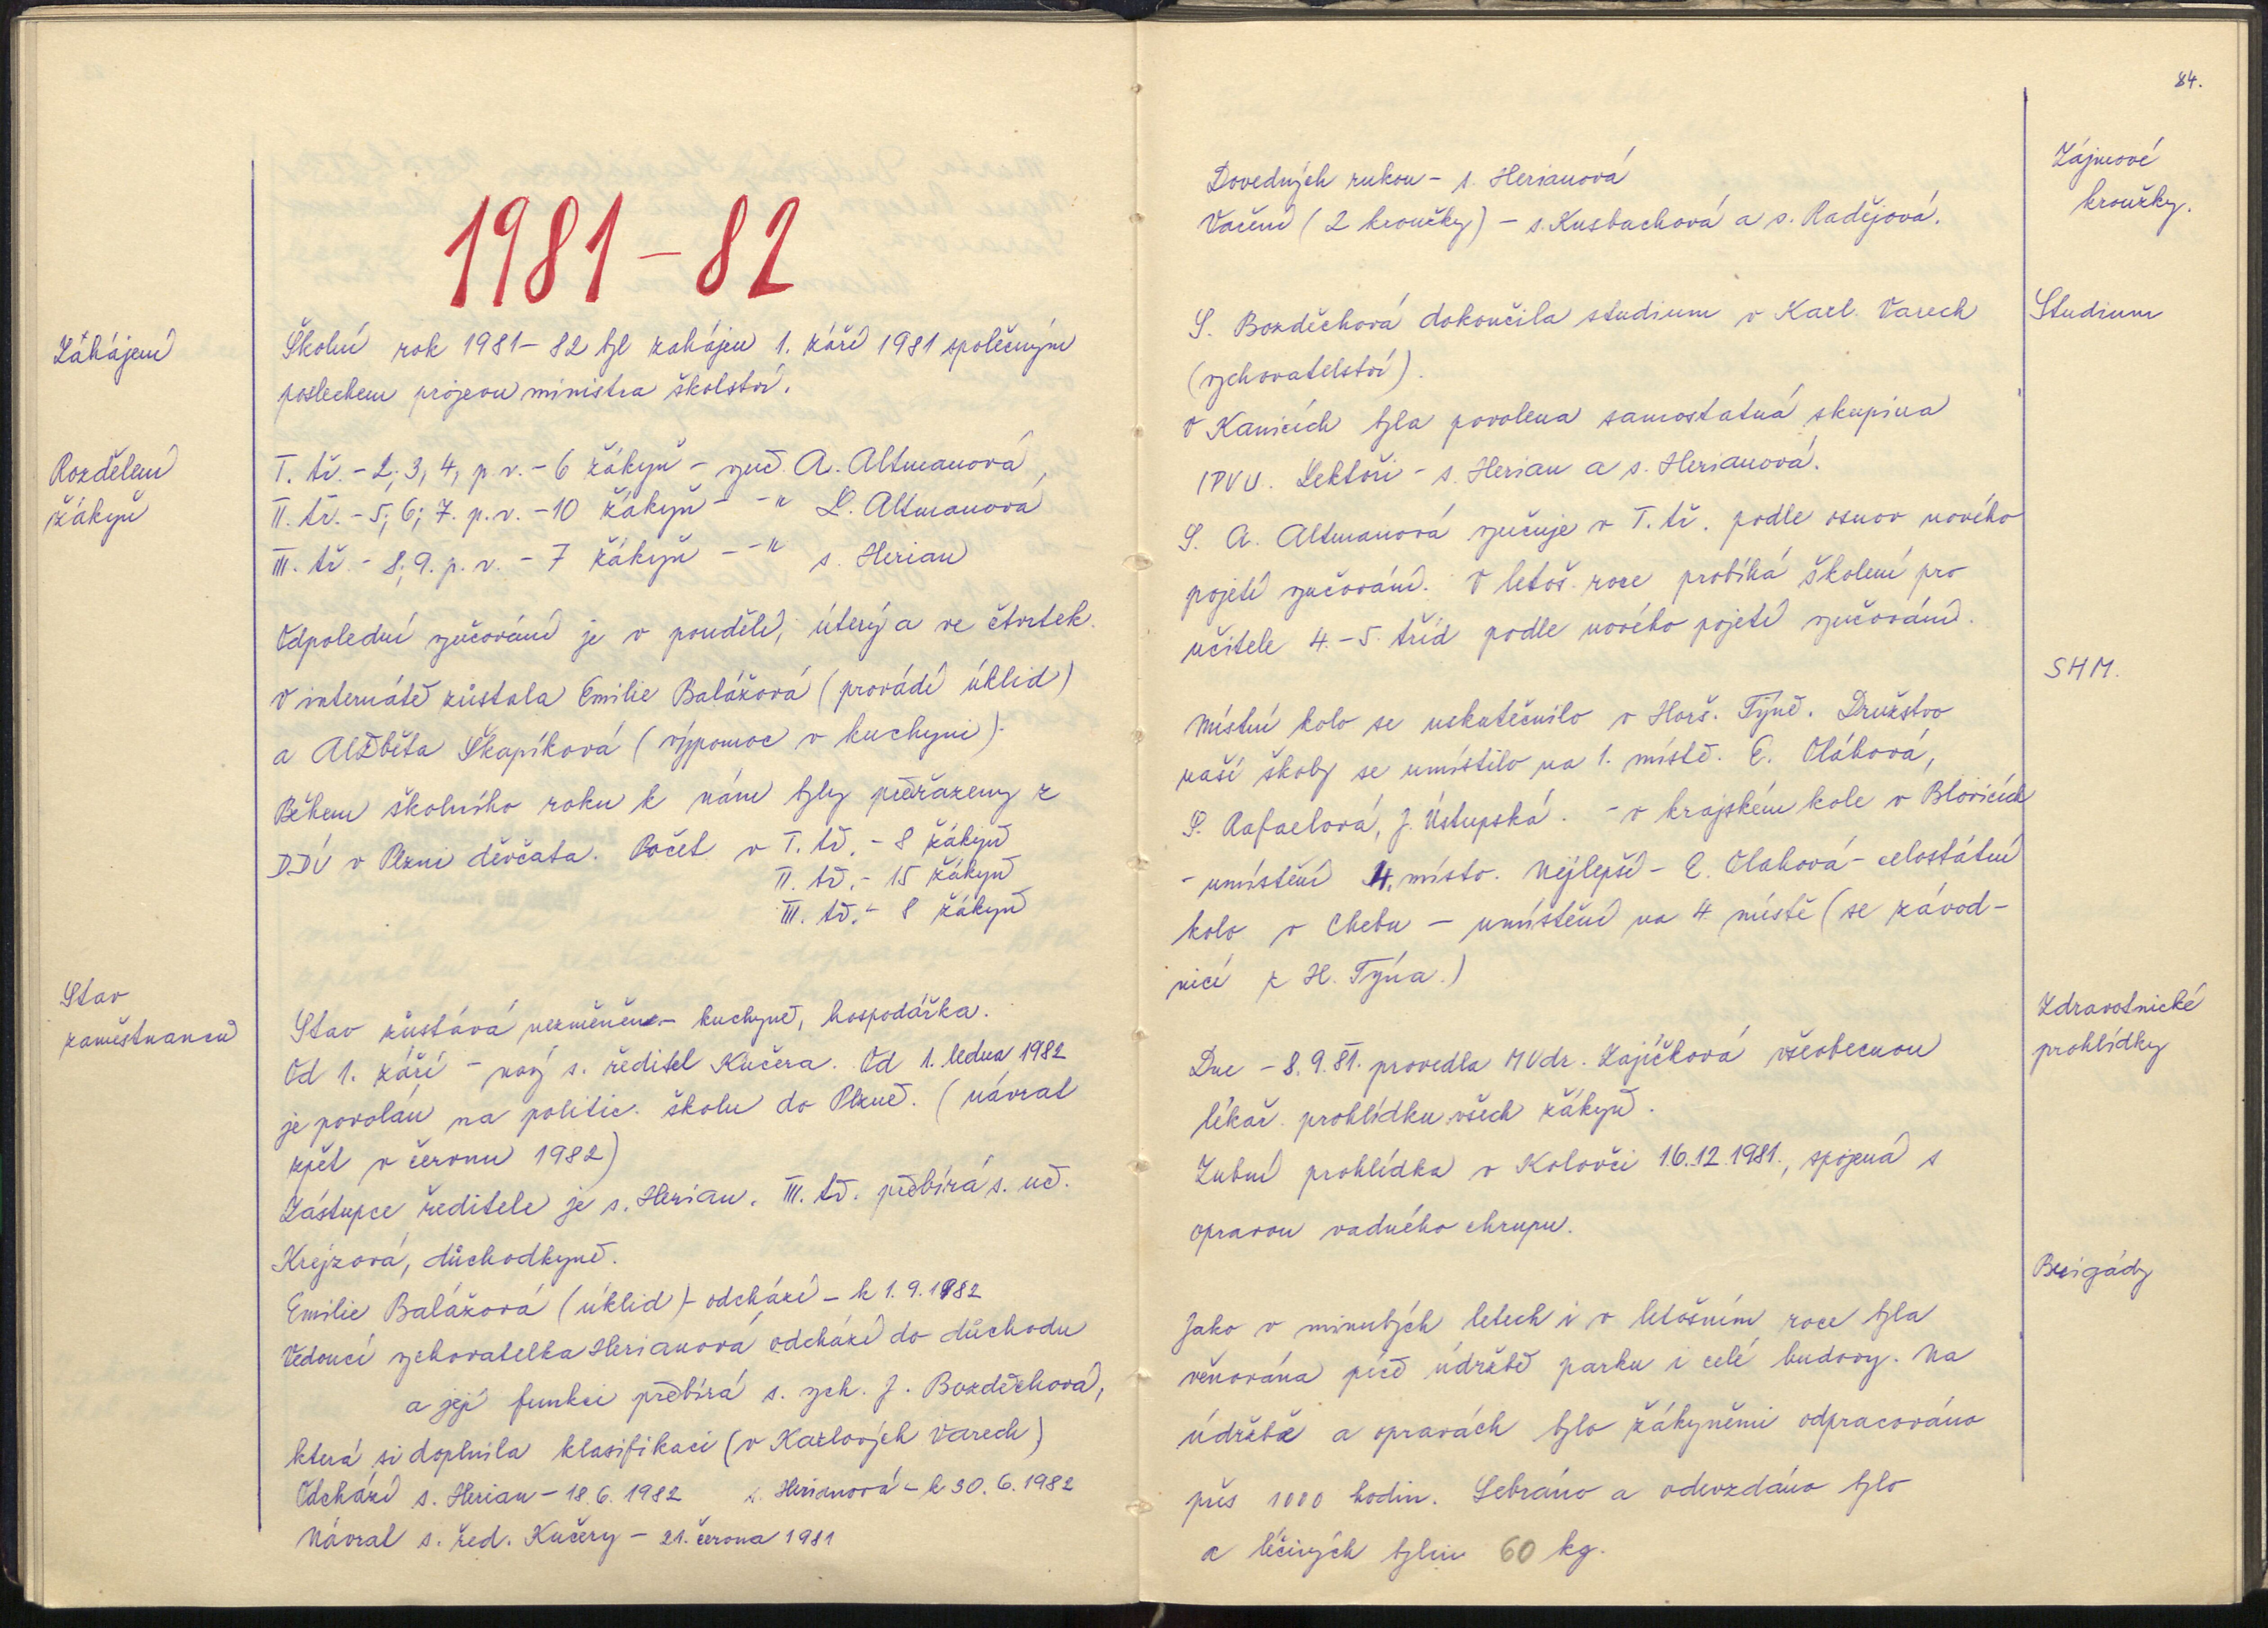 1981-82
Záhájení
Školní rok 1981-82 byl zahájen 1. září 1981 společným
poslechem projevu ministra školství.
Rozdělení
žákyň
I. tř. - 2; 3, 4, p. v. - 6 žákyň - vyuč. A. Altmanová,
II. tř. - 5; 6; 7. p. v. - 10 žákyň - -"- L. Altmanová
III. tř - 8; 9. p. v. - 7 žákyň - -"- s. Herian
Odpolední vyučování je v pondělí, úterý a ve čtvrtek.
V internátě zůstala Emilie Balážová (provádí úklid)
a Alžběta Škapíková (výpomoc v kuchyni).
Během školního roku k nám byly přeřazeny z
DDÚ v Plzni děvčata. Počet v I. tř. - 8 žákyň
II. tř. - 15 žákyň
III. tř. - 8 žákyň
Stav
zaměstnanců
Stav zůstává nezměněn - kuchyně, hospodářka.
Od 1. září - nový s. ředitel Kučera. Od 1. ledna 1982
je povolán na politic. školu do Plzně. (návrat
zpět v červnu 1982)
Zástupce ředitele je s. Herian. III. tř. přebírá s. uč.
Krejzová, důchodkyně.
Emilie Balážová (úklid) - odchází - k 1. 9. 1982
Vedoucí vychovatelka Herianová odchází do důchodu
a její funkci přebírá s. vych. J. Bozděchová,
která si doplnila klasifikaci (v Karlových Varech)
Odchází s. Herian - 18. 6. 1982 s. Herianová - k 30. 6. 1982
Návrat s. řed. Kučery - 21. června 1981
84.
Zájmové
kroužky.
Dovedných rukou - s. Herianová
Vaření (2 kroužky) - s. Kusbachová a s. Radějová.
Studium
S. Bozděchová dokončila studium v Karl. Varech
(vychovatelství).
V Kanicích byla povolena samostatná skupina
IPVU. Lektoři - s. Herian a s. Herianová.
S. A. Altmanová vyučuje v I. tř. podle osnov nového
pojetí vyučování. V letoš. roce probíhá školení pro
učitele 4. - 5. tříd podle nového pojetí vyučování.
SHM.
Místní kolo se uskutečnilo v Horš. Týně. Družstvo
naší školy se umístilo na 1. místě. E. Oláhová,
P. Rafaelová, J. Ústupská. - v krajském kole v Blovicích
- umístění 4. místo. Nejlepší - E. Olahová - celostátní
kolo v Chebu - umístění na 4 místě (se závod-
nicí z H. Týna.)
Zdravotnické
prohlídky
Dne - 8. 9. 81. provedla MUdr. Zajíčková všeobecnou
lékař. prohlídku všech žákyň.
Zubní prohlídka v Kolovči 16. 12. 1981., spojená s
opravou vadného chrupu.
Brigády
Jako v minulých letech i v letošním roce byla
věnována péče údržbě parku i celé budovy. Na
údržbě a opravách bylo žákyněmi odpracováno
přes 1000 hodin. Sebráno a odevzdáno bylo
a léčivých bylin 60 kg.